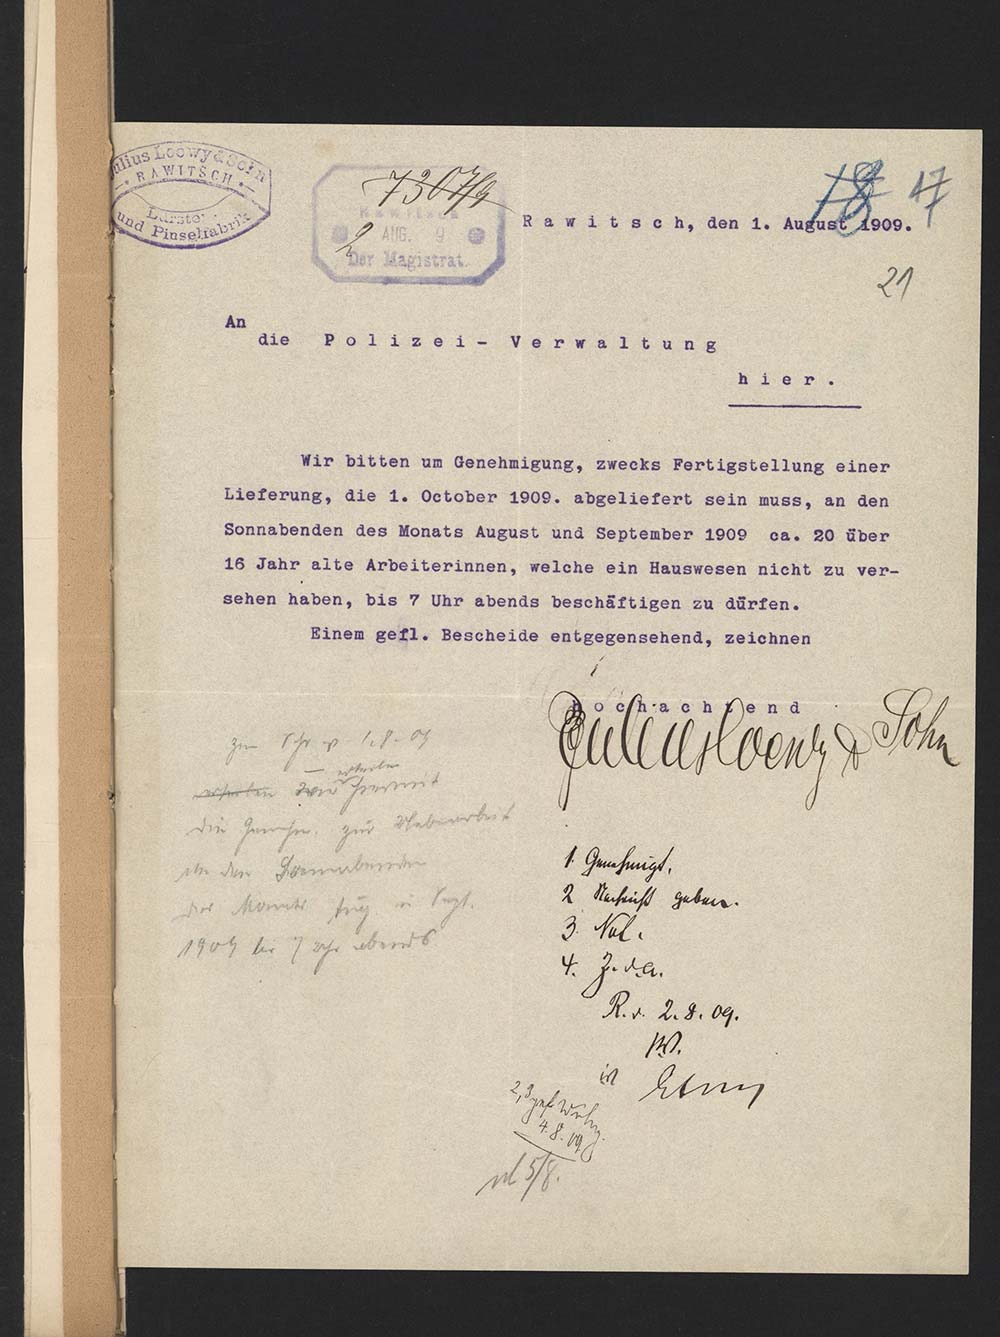 Julius Loewy & Sohn
RAWITSCH
Bürsten-
und Pinselfabrik
7307/9
Rawitsch
2 AUG. 9
Der Magistrat.
18 17
Rawitsch, den 1. August 1909.
21
An
die Polizei- Verwaltung
hier.
Wir bitten um Genehmigung, zwecks Fertigstellung einer
Lieferung, die 1. October 1909. abgeliefert sein muss, an den
Sonnabenden des Monats August und September 1909 ca. 20 über
16 Jahr alte Arbeiterinnen, welche ein Hauswesen nicht zu ver-
sehen haben, bis 7 Uhr abends beschäftigen zu dürfen.
Einem gefl. Bescheide entgegensehend, zeichnen
Hochachtend
Julius Loewy & Sohn
1.8.09
erteilen
erteilen wir hiermit
die Genehm. zur Ueberarbeit
an den Sonnabenden
des Monats Aug u Sept.
1909 bis 7 Uhr abends
1. Genehmigt.
2 Nachricht geben.
3. Not.
4. Z. d. A.
R. d. 2.8.09.
2,3 gef
4.8.09
5/8.